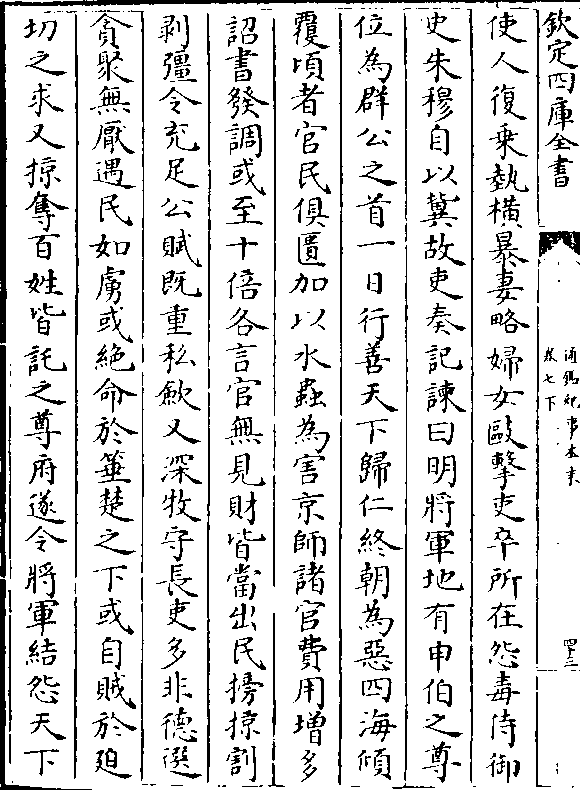 欽定四庫全書
通鑑紀事本末
卷七下
四十三
使人復乗埶横暴妻略婦女毆擊吏卒所在怨毒侍御
史朱穆自以冀故吏奏記諫曰明將軍地有申伯之尊
位為群公之首一日行善天下歸仁終朝為惡四海傾
覆頃者官民俱匱加以水蟲為害京師諸官費用增多
詔書發調或至十倍各言官無見財皆當出民搒掠割
剥彊令充足公賦既重私斂又深牧守長吏多非德選
貪聚無厭遇民如虜或絶命於箠楚之下或自賊於廹
切之求又掠奪百姓皆託之尊府遂令將軍結怨天下